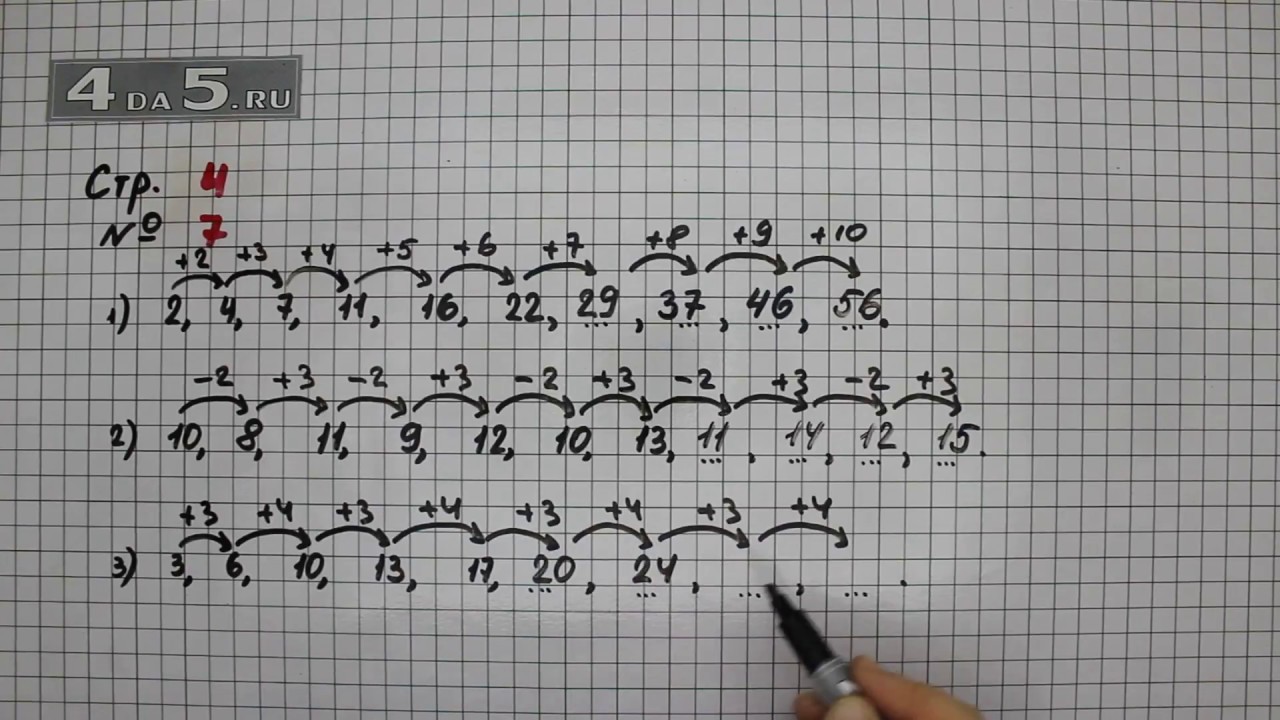 4 DA 5.RU
Стр. 4
№ 7
+2 +3 +4 +5 +6 +7 +8 +9 +10
1) 2, 4, 7, 11, 16, 22, 29, 37, 46, 56.
-2 +3 -2 +3 -2 +3 -2 +3 -2 +3
2) 10, 8, 11, 9, 12, 10, 13, 11, 14, 12, 15.
+3 +4 +3 +4 +3 +4 +3 +4
3) 3, 6, 10, 13, 17, 20, 24, ..., ... .